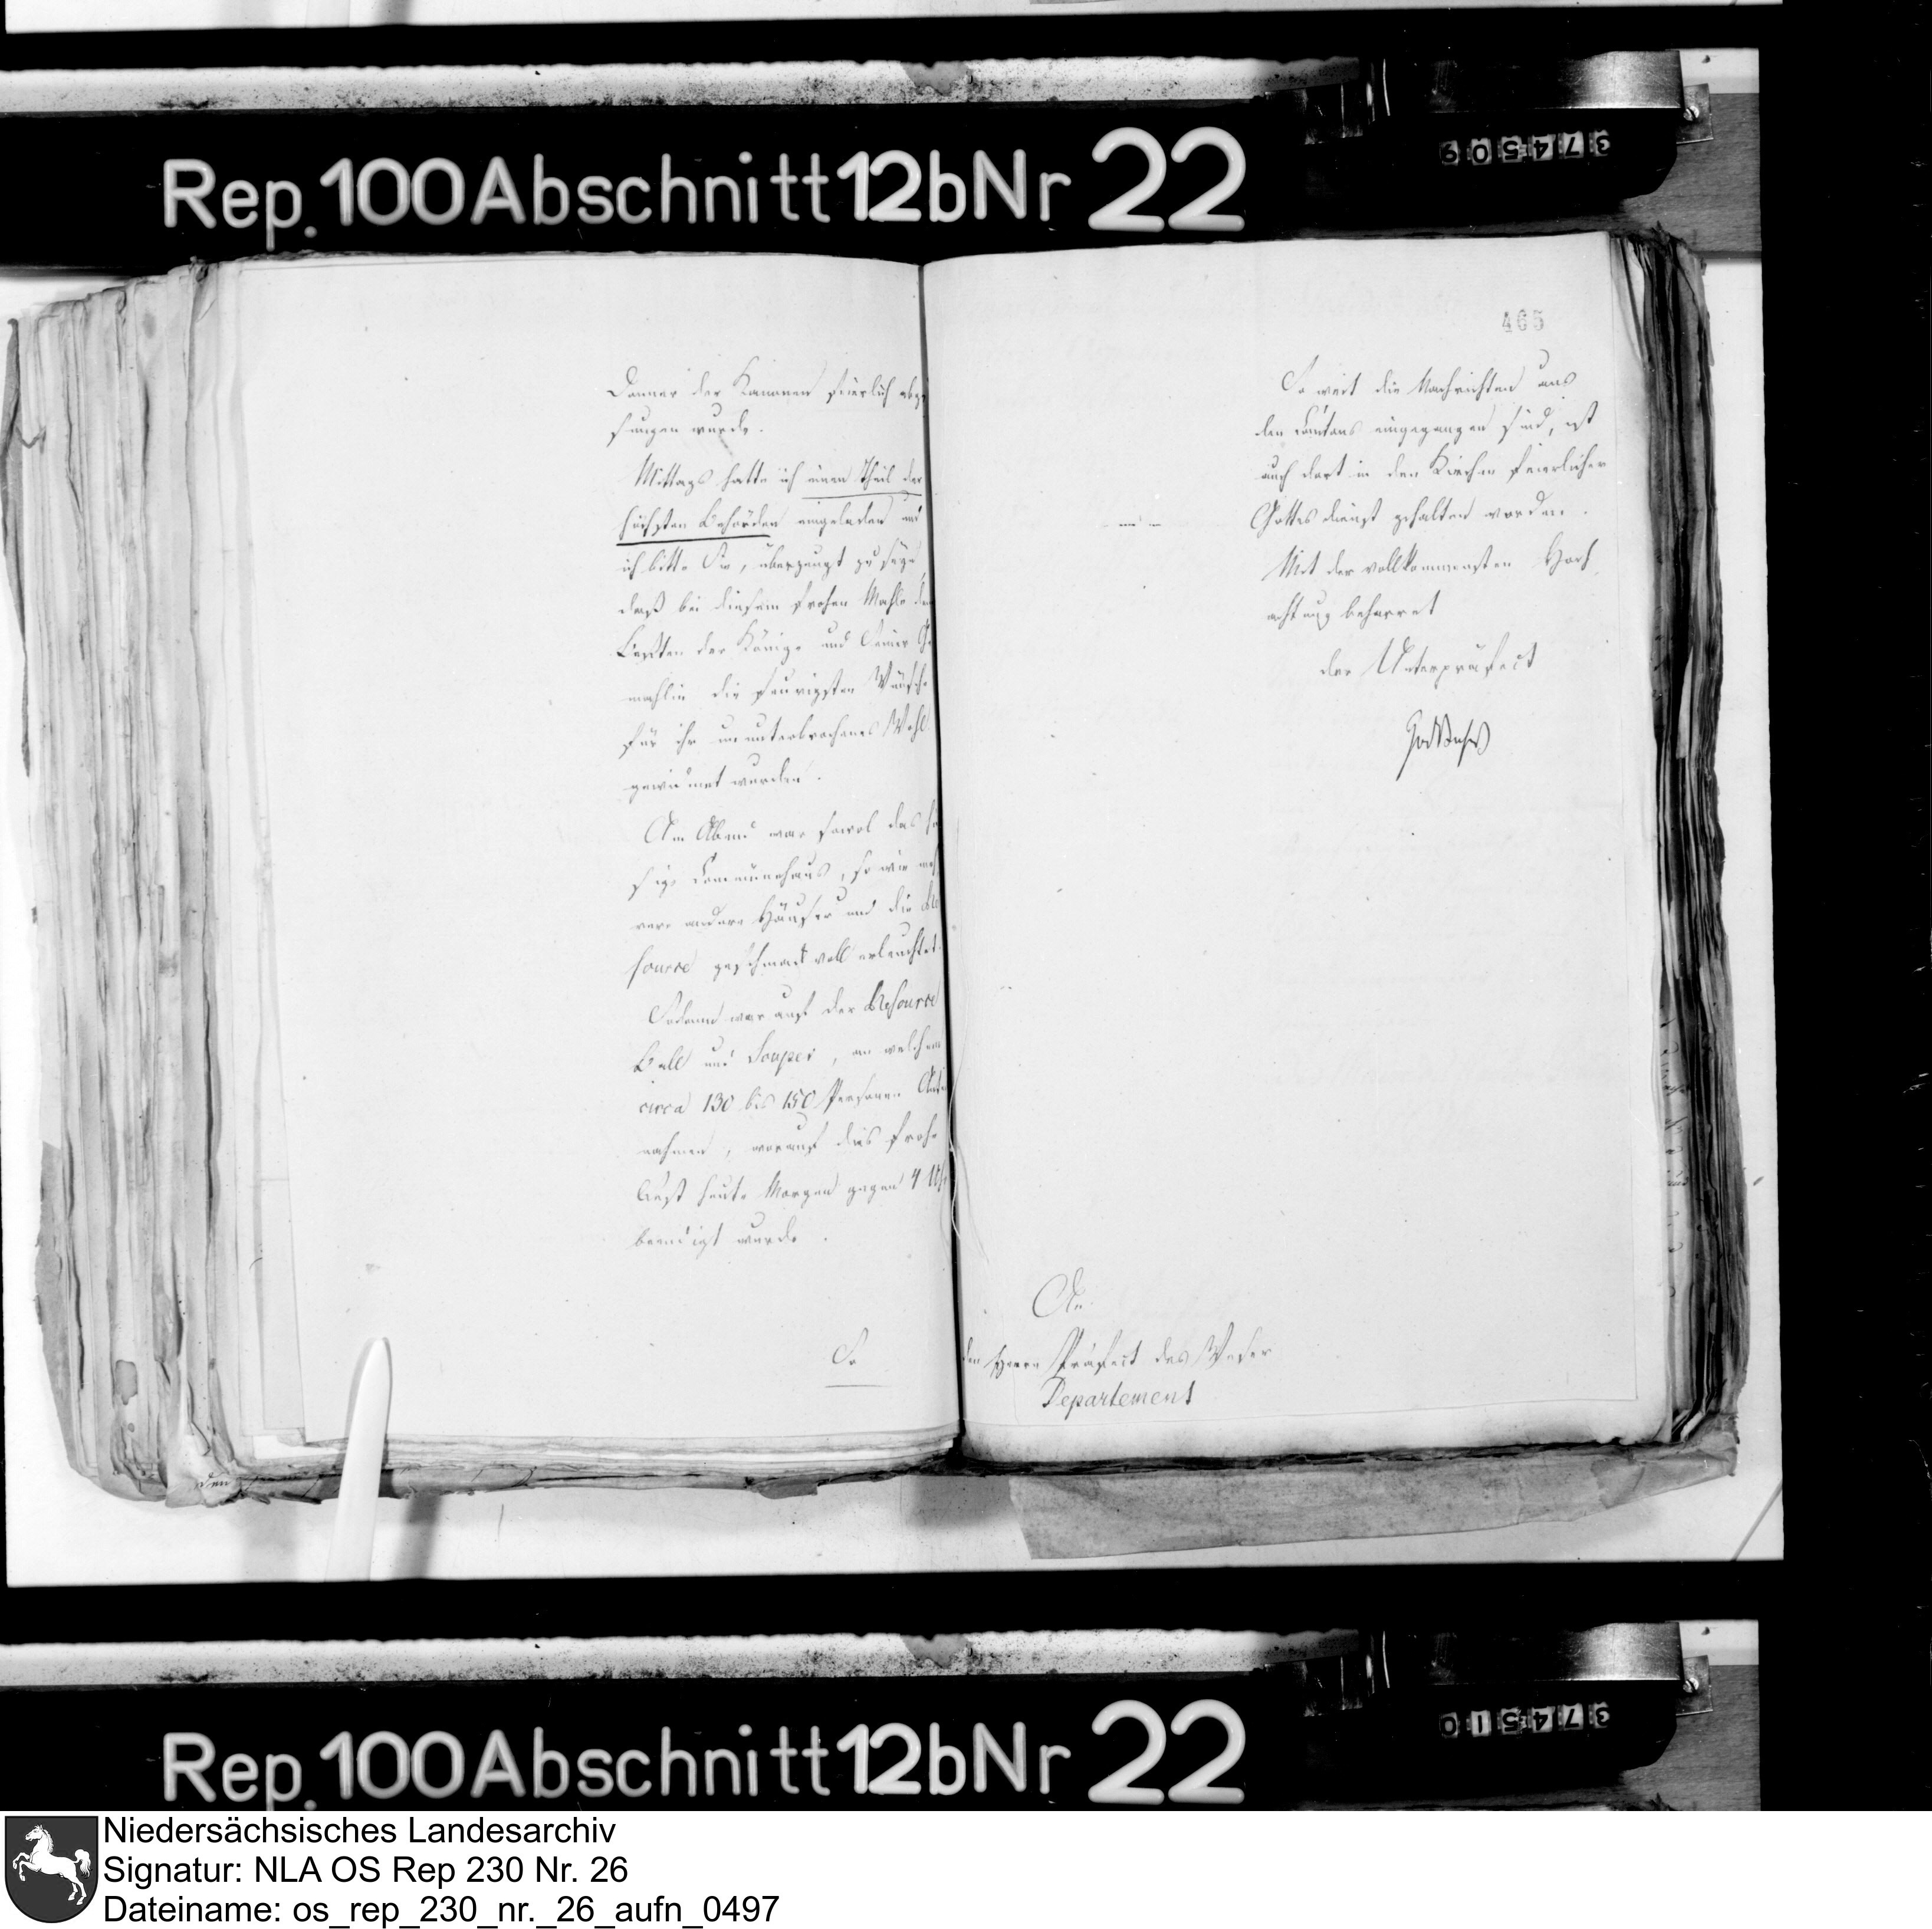 Rep. 100 Abschnitt 12b Nr 22
374509
Donner der Kanonen feierlich abge
sungen wurde.
Mittags hatte ich einen Theil der
höchsten Behörden eingeladen und
ich bitte Sie, überzeugt zu seyn,
daß bei diesem frohen Mahle dem
Besten der Könige und Seiner Ge
mahlin die feurigsten Wünsche
für ihr ununterbrochenes Wohl
gewidmet wurden.
Am Abend war sowol das hie
sige Communehaus, so wie meh
rere andere Häuser und die Re
source geschmackvoll erleuchtet.
Sodann war auf der Resource
Ball und Souper, an welchem
circa 130 bis 150 Personen Antheil
nahmen, worauf dies frohe
Fest heute Morgen gegen 4 Uhr
beendigt wurde.
So
465
So weit die Nachrichten aus
den Cantons eingegangen sind, ist
auch dort in den Kirchen feierlicher
Gottesdienst gehalten worden.
Mit der vollkommensten Hoch
achtung beharret
der Unterpräfect
An
den Herrn Präfect des Weser
Departement
den
Rep. 100 Abschnitt 12b Nr 22
374510
Niedersächsisches Landesarchiv
Signatur: NLA OS Rep 230 Nr. 26
Dateiname: os_rep_230_nr._26_aufn_0497